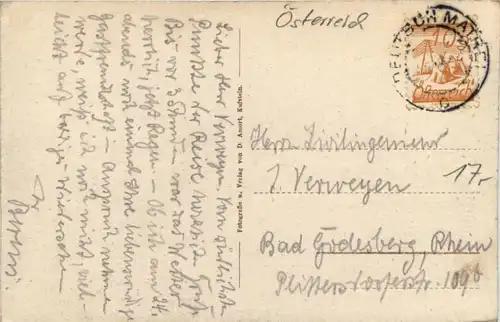 Österreich
DEUTSCH MATREI
10
Lieber Herr Verweyen, Vom
Punkte der Reise herzliche Grüße
Bis vor 3 Stunden war das Wetter
herrlich, jetzt Regen. – Ob ich am 24.
abends noch einmal Ihre liebenswürdige
Gastfreundschaft in Anspruch nehmen
werde, weiß ich noch nicht, viel-
leicht auf baldiges Wiedersehen
Ihr
Fotografie u. Verlag von D. Amort, Kufstein.
Herrn Zivilingenieur
J. Verweyen
17.-
Bad Godesberg, Rhein
Plittersdorferstr. 109